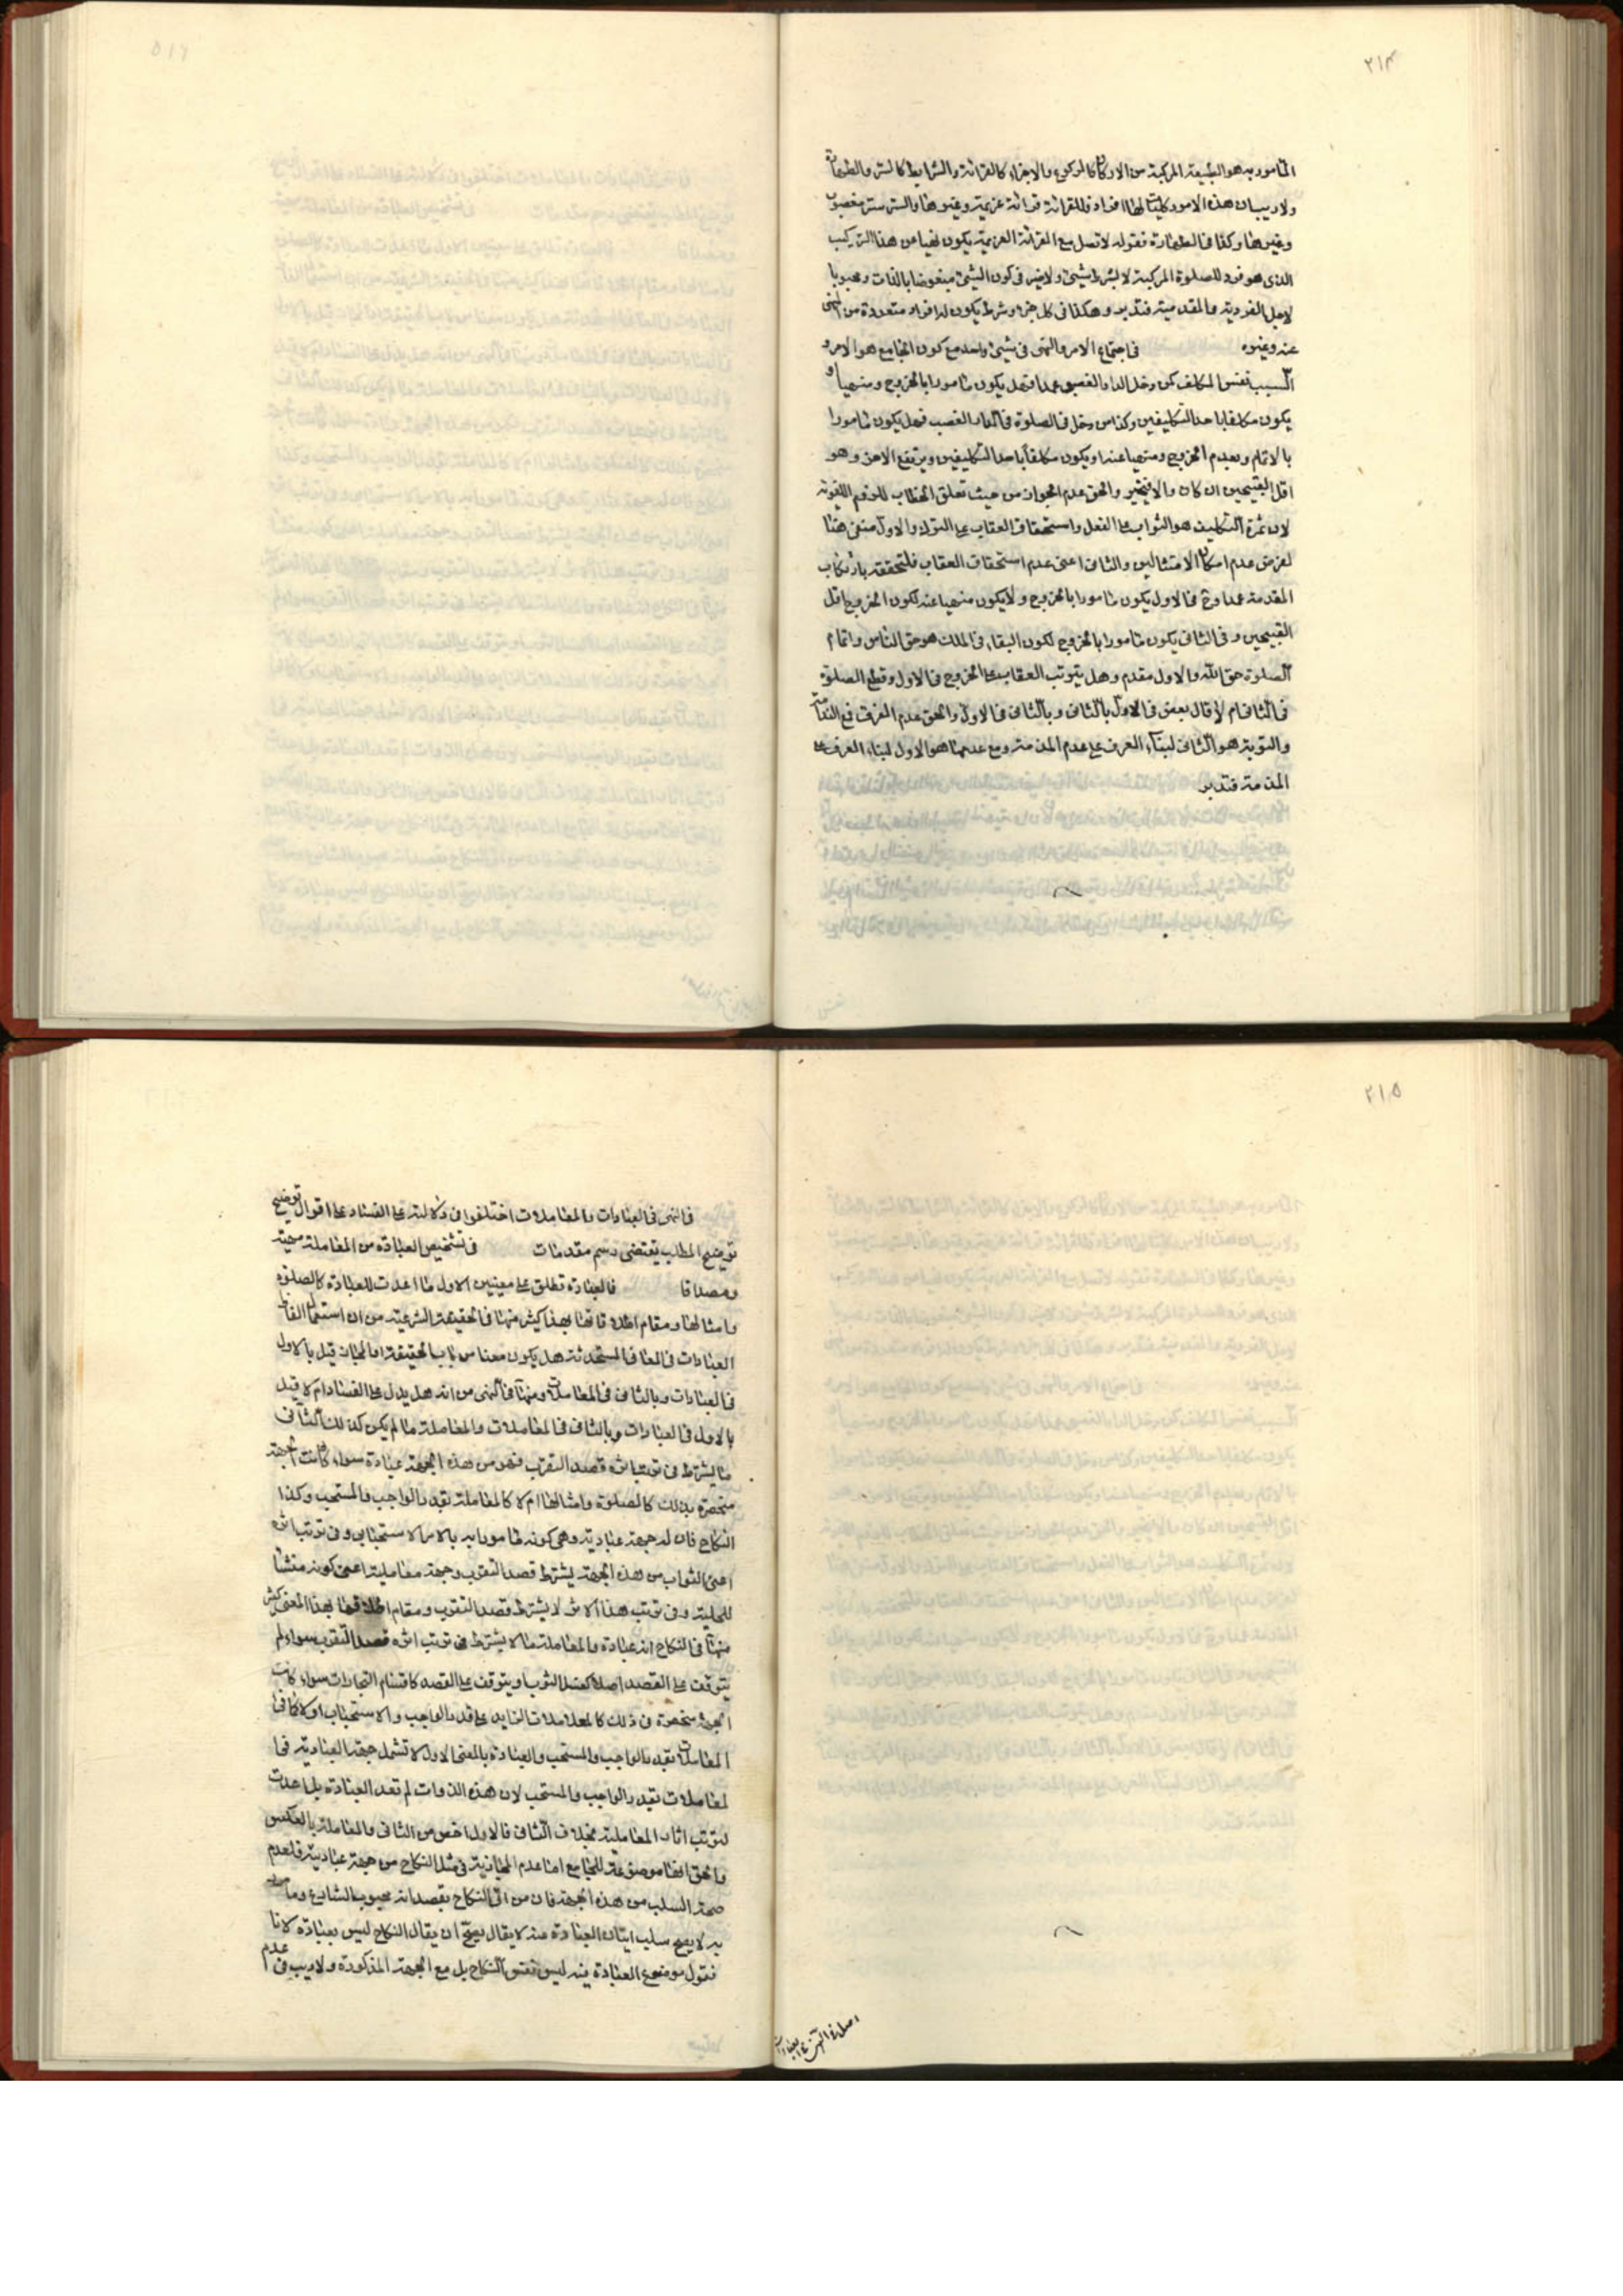 ٢١٣
المامور به هو الطبيعة المركبة من الاركان كالركوع والاجزاء كالقرائة والشرايط كالستر والطهارة
ولا ريب ان هذه الامور كليات لها افراد فللقرائة قرائة عزيمة وغيرها والستر ستر مغصوب
وغيرها وكذا فى الطهارة فقوله لا تصل مع القرائة العزيمة يكون نهيا عن هذا التركيب
الذى هو فرد للصلوة المركبة لا بشرط شيئ ولا ضير فى كون الشيئ مبغوضا بالذات ومحبوبا
لاجل الفردية والمقدمية فتدبر وهكذا فى كل جزء وشرط يكون له افراد متعددة من المنهى
عنه وغيره فى اجتماع الامر والنهى فى شيئ واحد مع كون الجامع هو الامر و
السبب نفس المكلف كمن دخل الدار الغصبى عمدا فهل يكون مامورا بالخروج ومنهيا او
يكون مكلفا باحد التكليفين وكذا من دخل فى الصلوة فى الدار الغصب فهل يكون مامورا
بالاتمام وبعدم الخروج ومنهيا عنه او يكون مكلفا باحد التكليفين ويرتفع الاخر وهو
اقل القبيحين ان كان والا فيتخير والحق عدم الجواز من حيث تعلق الخطاب للزوم اللغوية
لان ثمرة التكليف هو الثواب على الفعل واستحقاق العقاب على الترك والاول منفى هنا
لفرض عدم امكان الامتثالين والثانى اعنى عدم استحقاق العقاب فلتحققه بارتكاب
المقدمة عمدا وح فى الاول يكون مامورا بالخروج ولا يكون منهيا عنه لكون الخروج اقل
القبيحين وفى الثانى يكون مامورا بالخروج لكون البقاء فى الملك هو حق الناس واتمام
الصلوة حق الله والاول مقدم وهل يترتب العقاب على الخروج فى الاول وقطع الصلوة
فى الثانى ام لا قال بعض فى الاول بالثانى وبالثانى فى الاول والحق عدم الفرق فمع الندامة
والتوبة هو الثانى لبناء العرف على عدم المذمة ومع عدمها هو الاول لبناء العرف على
المذمة فتدبر
٢١٥
فى النهى فى العبادات والمعاملات اختلفوا فى دلالته على الفساد على اقوال توضيح
توضيح المطلب يقتضى رسم مقدمات فى تشخيص العبادة من المعاملة
ومصداقا فالعبادة تطلق على معنيين الاول ما اعدت للعبادة كالصلوة
وامثالها ومقام اطلاقاتها بهذا كثير منها فى الحقيقة الشرعية من ان استعمال الفاظ
العبادات فى المعانى المستحدثة هل يكون من باب الحقيقة او المجاز قيل بالاول
فى العبادات وبالثانى فى المعاملات ومنها فى النهى من انه هل يدل على الفساد ام لا قيل
بالاول فى العبادات وبالثانى فى المعاملات والمعاملة ما لم يكن كذلك الثانى
ما يشترط فى ترتب اثره قصد التقرب فهو من هذه الجهة عبادة سواء كانت الجهة
منحصرة بذلك كالصلوة وامثالها ام لا كالمعاملة بقيد الواجب والمستحب وكذا
النكاح فان له جهة عبادية وهى كونه مامورا به بالامر الاستحبابى وفى ترتب اثره
اعنى الثواب من هذه الجهة يشترط قصد التقرب وجهة معاملية اعنى كونه منشأ
للحلية وفى ترتب هذا الاثر لا يشترط قصد التقرب ومقام اطلاقها بهذا المعنى كثير
منها فى النكاح انه عبادة والمعاملة ما لا يشترط فى ترتب اثره قصد التقرب سواء لم
يتوقف على القصد اصلا كغسل الثوب او يتوقف على القصد كاقسام التجارات سواء كانت
الجهة منحصرة فى ذلك كالمعاملات بقيد الواجب والاستحباب او لا كما فى
المعاملات بقيد الواجب والمستحب والعبادة بالمعنى الاول لا تشمل جهة العبادية فى ا
لمعاملات بقيد الواجب والمستحب لان هذه الذوات لم تعد العبادة بل اعدت
لترتب اثار المعاملية بخلاف الثانى فالاول اخص من الثانى والمعاملة بالعكس
والحق انها موضوعة للجامع اما عدم المجازية فى مثل النكاح من جهة عبادية فلعدم
صحة السلب من هذه الجهة فان من اتى النكاح بقصد انه محبوب الشارع ومامور
به لا يصح سلب اتيان العبادة عنه لا يقال يصح ان يقال النكاح ليس بعبادة لانا
نقول موضوع العبادة فيه ليس نفس النكاح بل مع الجهة المذكورة ولا ريب فى عدم
اصل فى النهى فى العبادات